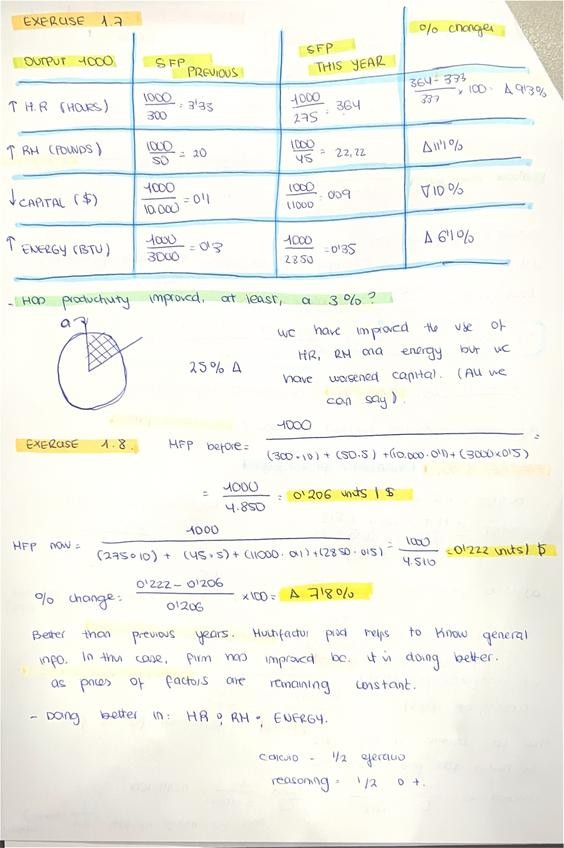 EXERCISE 1.7
OUTPUT 1000 SFP PREVIOUS SFP THIS YEAR % changes
↑ H.R (HOURS) 1000/300 = 3'33 1000/275 = 364 364-333/333 × 100 = Δ 9'13%
↑ RM (POUNDS) 1000/50 = 20 1000/45 = 22,22 Δ 11'1%
↓ CAPITAL ($) 1000/10.000 = 0'1 1000/11000 = 009 ∇ 10%
↑ ENERGY (BTU) 1000/3000 = 0'3 1000/2850 = 0'35 Δ 6'1%
- Has productivity improved, at least, a 3%?
25% Δ
we have improved the use of
HR, RM and energy but we
have worsened capital. (All we
can say).
EXERCISE 1.8. MFP before = 1000/(300·10) + (50·5) + (10.000·0'1) + (3000×0'5) =
= 1000/4.850 = 0'206 units / $
MFP now = 1000/(275·10) + (45·5) + (11000·0'1) + (2850·0'5) = 1000/4.510 = 0'222 units / $
% change: 0'222 - 0'206/0'206 × 100 = Δ 7'8%
Better than previous years. Multifactor prod helps to know general
info. In this case, firm has improved bc. it is doing better.
as prices of factors are remaining constant.
- Doing better in: HR, RM, ENERGY.
calculo = 1/2 ejercicio
reasoning = 1/2 o +.